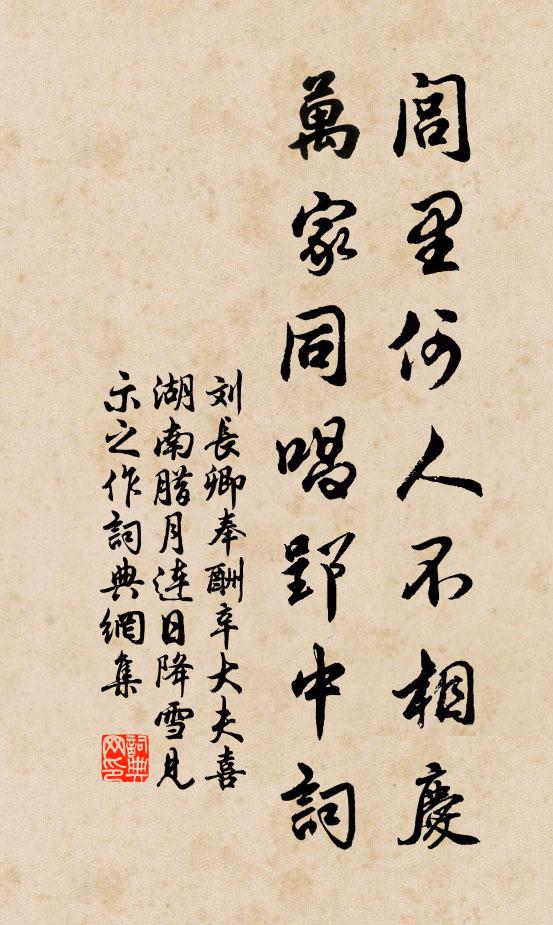 閭里何人不相慶
萬家同唱郢中詞
刘長卿奉酬辛大夫喜
湖南腊月連日降雪見
示之作詞典網集
詞典网印